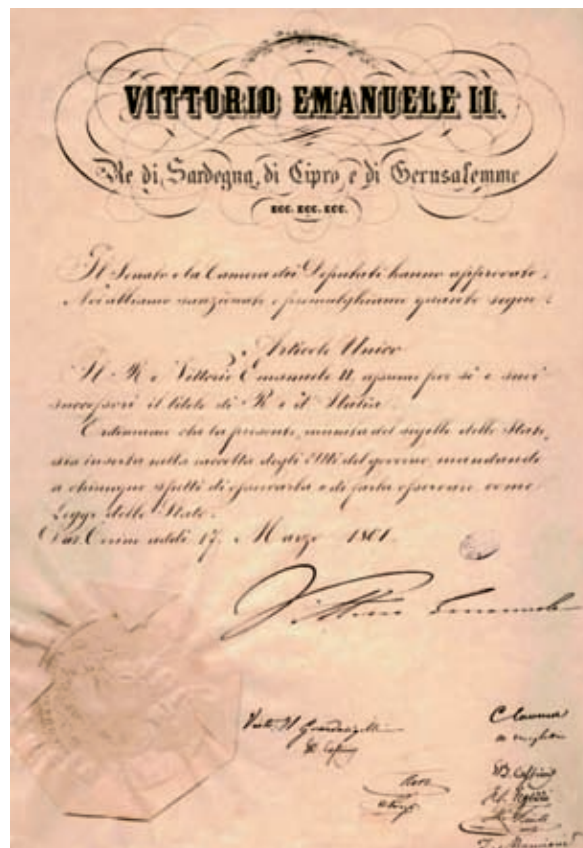 VITTORIO EMANUELE II.
Re di Sardegna, di Cipro e di Gerusalemme
ECC. ECC. ECC.
Il Senato e la Camera dei Deputati hanno approvato
Noi abbiamo sanzionato e promulghiamo quanto segue:
Articolo Unico
Il Re Vittorio Emanuele II assume per sè e suoi
successori il titolo di Re d'Italia.
Ordiniamo che la presente, munita del sigillo dello Stato,
sia inserta nella raccolta degli Atti del governo, mandando
a chiunque spetti di osservarla e di farla osservare come
Legge dello Stato.
Dat. Torino addì 17. Marzo 1861.
Vittorio Emanuele
C Cavour
M Minghetti